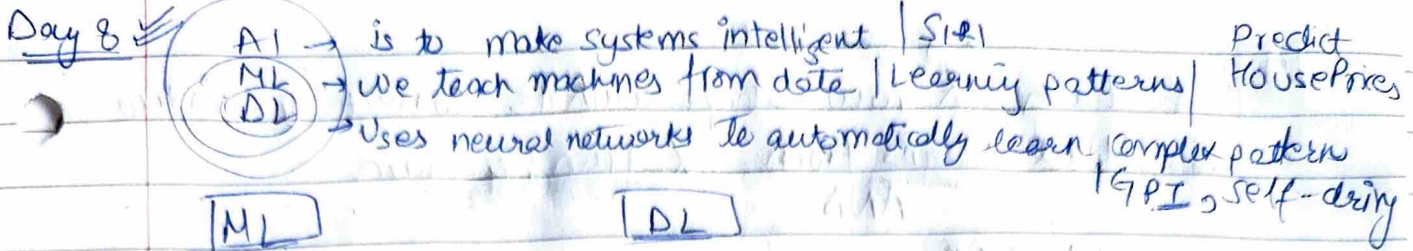 Day 8
AI → is to make systems intelligent | Siri
ML → we teach machines from data | Learning patterns | Predict HousePrices
DL → Uses neural networks to automatically learn complex pattern
| GPT, self-driving
ML DL